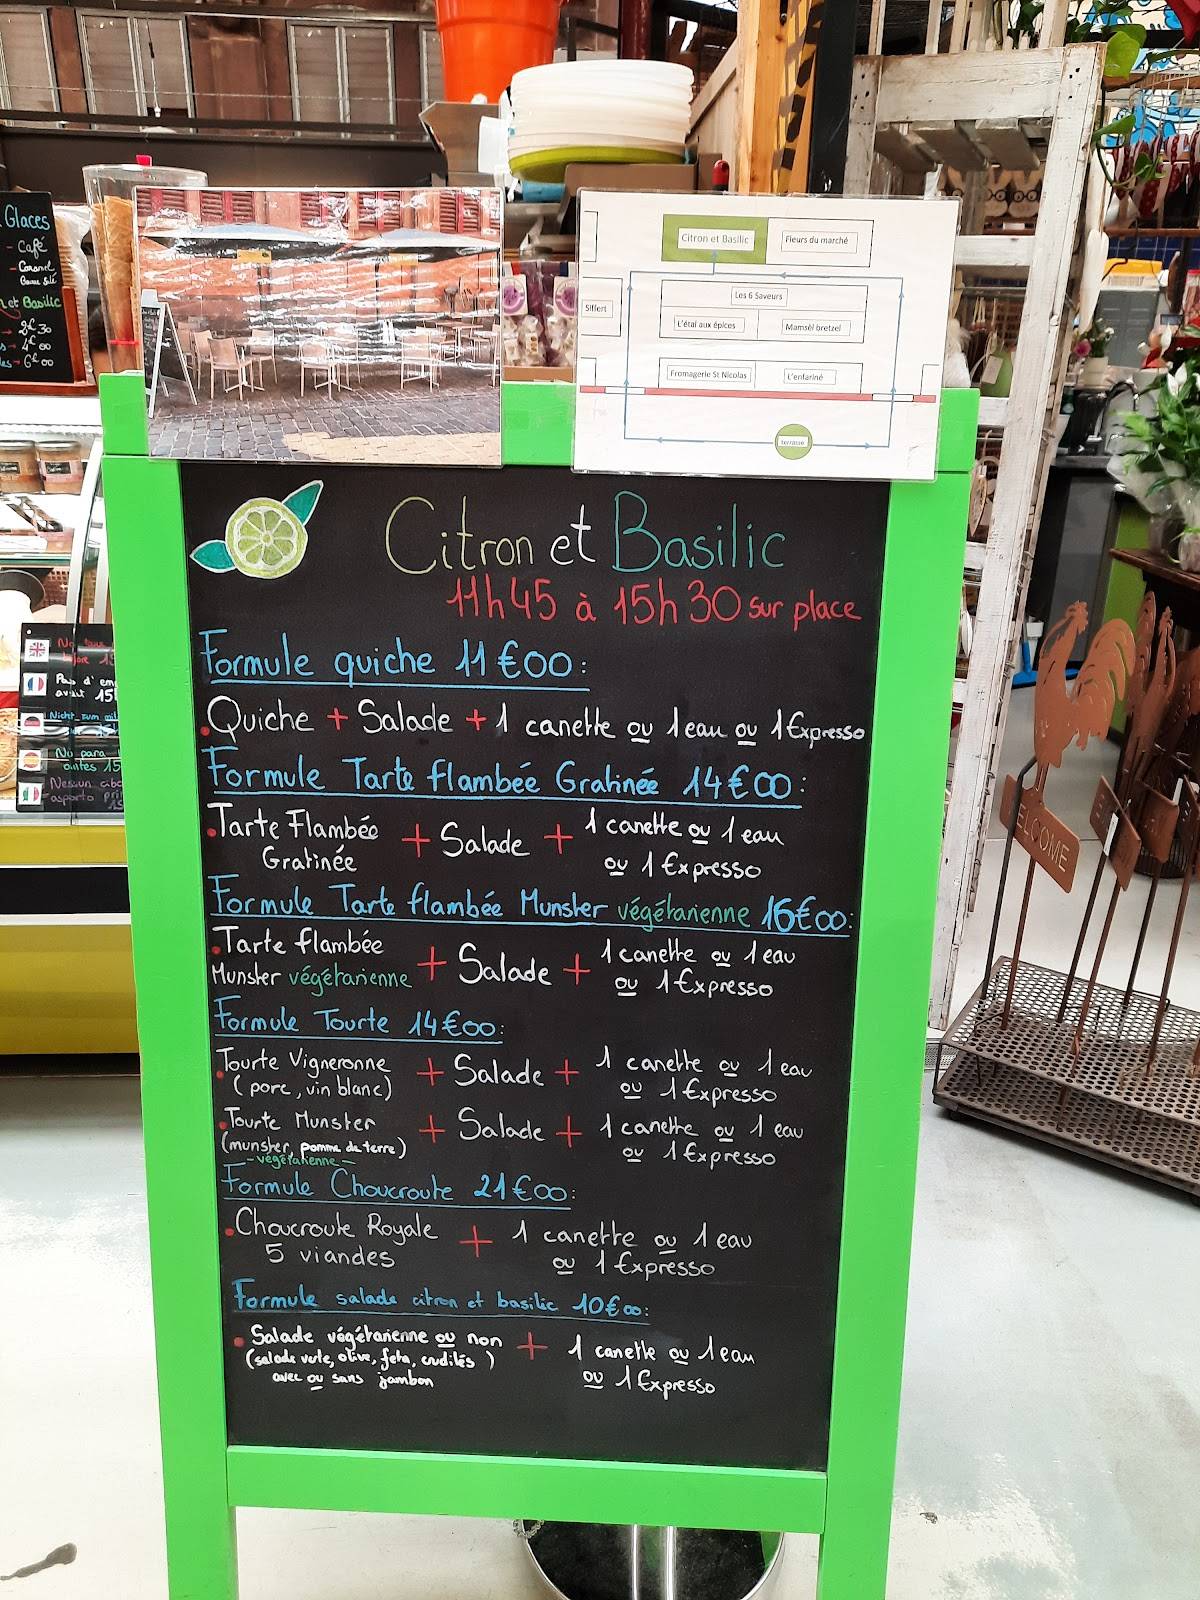 Glaces
- Café
- Caramel
Beurre Salé
et Basilic
2€30
4€00
6€00
Citron et Basilic
Fleurs du marché
Les 6 Saveurs
Siffert
L'étal aux épices
Mamsèl bretzel
Fromagerie St Nicolas
L'enfariné
terrasse
Citron et Basilic
11h45 à 15h30 sur place
Formule quiche 11€00:
Quiche + Salade + 1 canette ou 1 eau ou 1 Expresso
Formule Tarte flambée Gratinée 14€00:
Tarte Flambée Gratinée + Salade + 1 canette ou 1 eau
ou 1 Expresso
Formule Tarte flambée Munster végétarienne 16€00:
Tarte flambée
Munster végétarienne + Salade + 1 canette ou 1 eau
ou 1 Expresso
Formule Tourte 14€00:
Tourte Vigneronne
(porc, vin blanc) + Salade + 1 canette ou 1 eau
ou 1 Expresso
Tourte Munster
(munster, pomme de terre)
- végétarienne -
+ Salade + 1 canette ou 1 eau
ou 1 Expresso
Formule Choucroute 21€00:
Choucroute Royale
5 viandes + 1 canette ou 1 eau
ou 1 Expresso
Formule salade citron et basilic 10€00:
Salade végétarienne ou non
(salade verte, olive, feta, crudités)
avec ou sans jambon
+ 1 canette ou 1 eau
ou 1 Expresso
Pas d'em
avant 15
Nicht zum mit
No para
antes 15
Nessun cibo
asporto pri
WELCOME